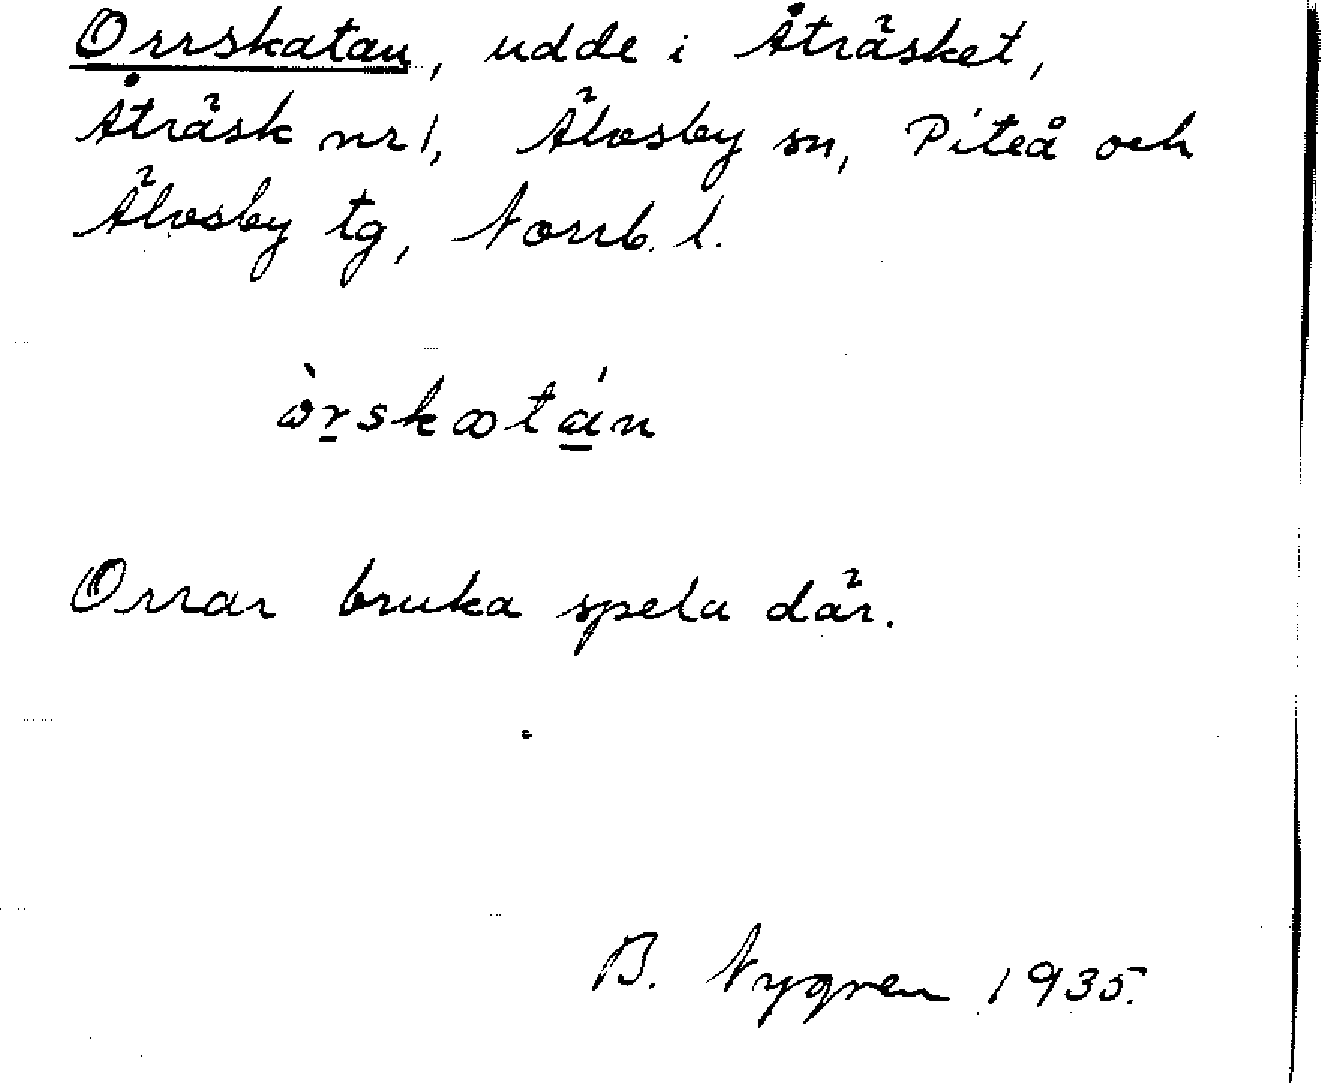 Orrskatan, udde i Åträsket,
Åträsk nr 1, Älvsby sn, Piteå och
Älvsby tg, Norrb. l.
Orrar bruka spela där.
B. Nygren 1935.